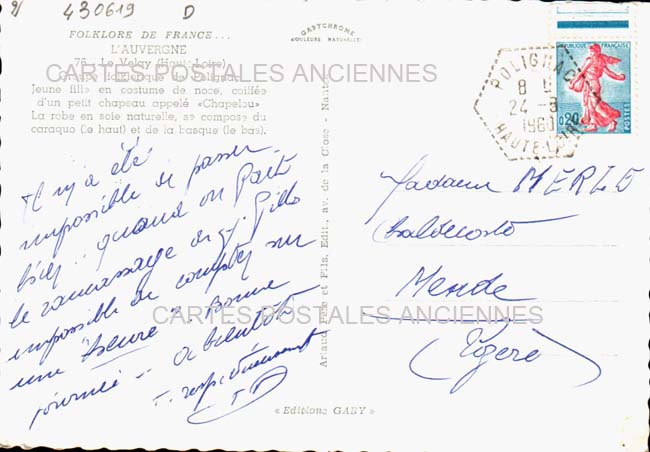 430619 D
FOLKLORE DE FRANCE...
L'AUVERGNE
76 - Le Velay (Haute-Loire)
Groupe folklorique de Polignac
Jeune fille en costume de noce, coiffée
d'un petit chapeau appelé «Chapelou»
La robe en soie naturelle, se compose du
caraquo (le haut) et de la basque (le bas).
GABYCHROME
COULEURS NATURELLES
CARTES POSTALES ANCIENNES
RÉPUBLIQUE FRANÇAISE
0,20
POSTES
POLIGNAC
8 H
24 -8
1960
HAUTE-LOIRE
Il n'y a été
impossible de passer
quand on
le ramassage
impossible de compter sur
une "heure". Bonne
journée - à bientôt
respectueusement
Édit., av. de la Close - Nantes
et Fils,
Madame MERLE
Mende
Lozère
CARTES POSTALES ANCIENNES
«Editions GABY»